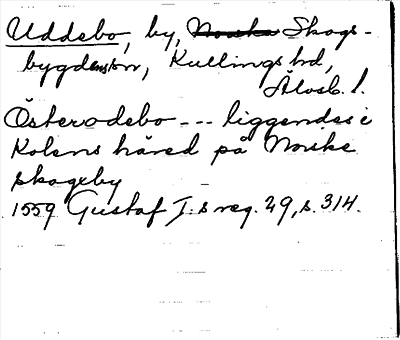 Uddebo, by, Norska Skogs-
bygdens sn, Kullings hd,
Älvsb. l.
Österodebo --- liggendes i
Kolens häred på Norske
skogeby
1559 Gustaf I:s reg. 29, s. 314.